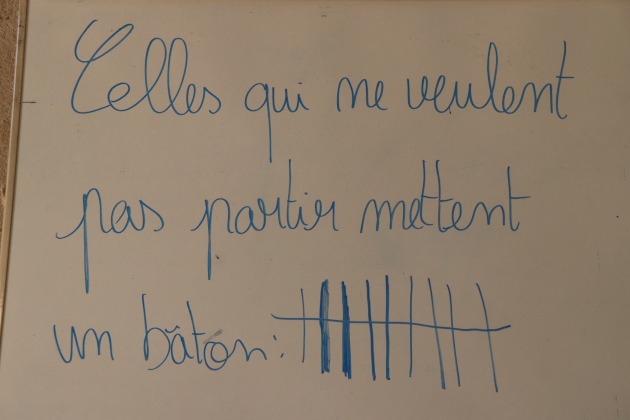 Celles qui ne veulent
pas partir mettent
un bâton: